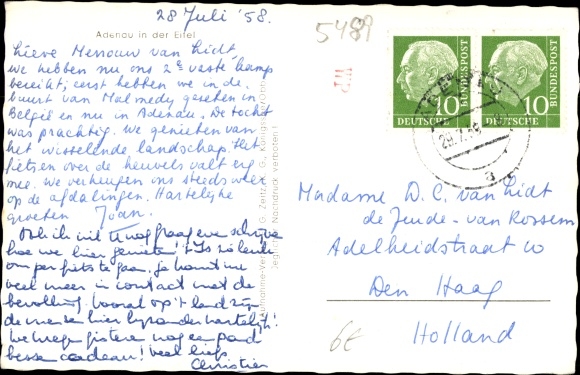 28 Juli '58.
Adenau in der Eifel
Lieve Mevrouw van Lidt,
We hebben nu ons 2e vaste kamp
bereikt; eerst hebben we in de
buurt van Malmedy gezeten in
België en nu in Adenau. De tocht
was prachtig. We genieten van
het wisselende landschap. Het
fietsen over de heuvels valt erg
mee. We verheugen ons steeds weer
op de afdalingen. Hartelijke
groeten Joan.
Ook ik wil U nog graag even schrijven
hoe we hier genieten! 't Is zo leuk
om per fiets te gaan. je komt nu
veel meer in contact met de
bevolking. Vooral op 't land zijn
de mensen hier bijzonder hartelijk!
We kregen gisteren nog een pond
bessen cadeau! Veel liefs
Christien
5489
DEUTSCHE BUNDESPOST 10
DEUTSCHE BUNDESPOST 10
Madame D. C. van Lidt
de Jeude - van Rossem
Adelheidstraat 10
Den Haag
Holland
6€